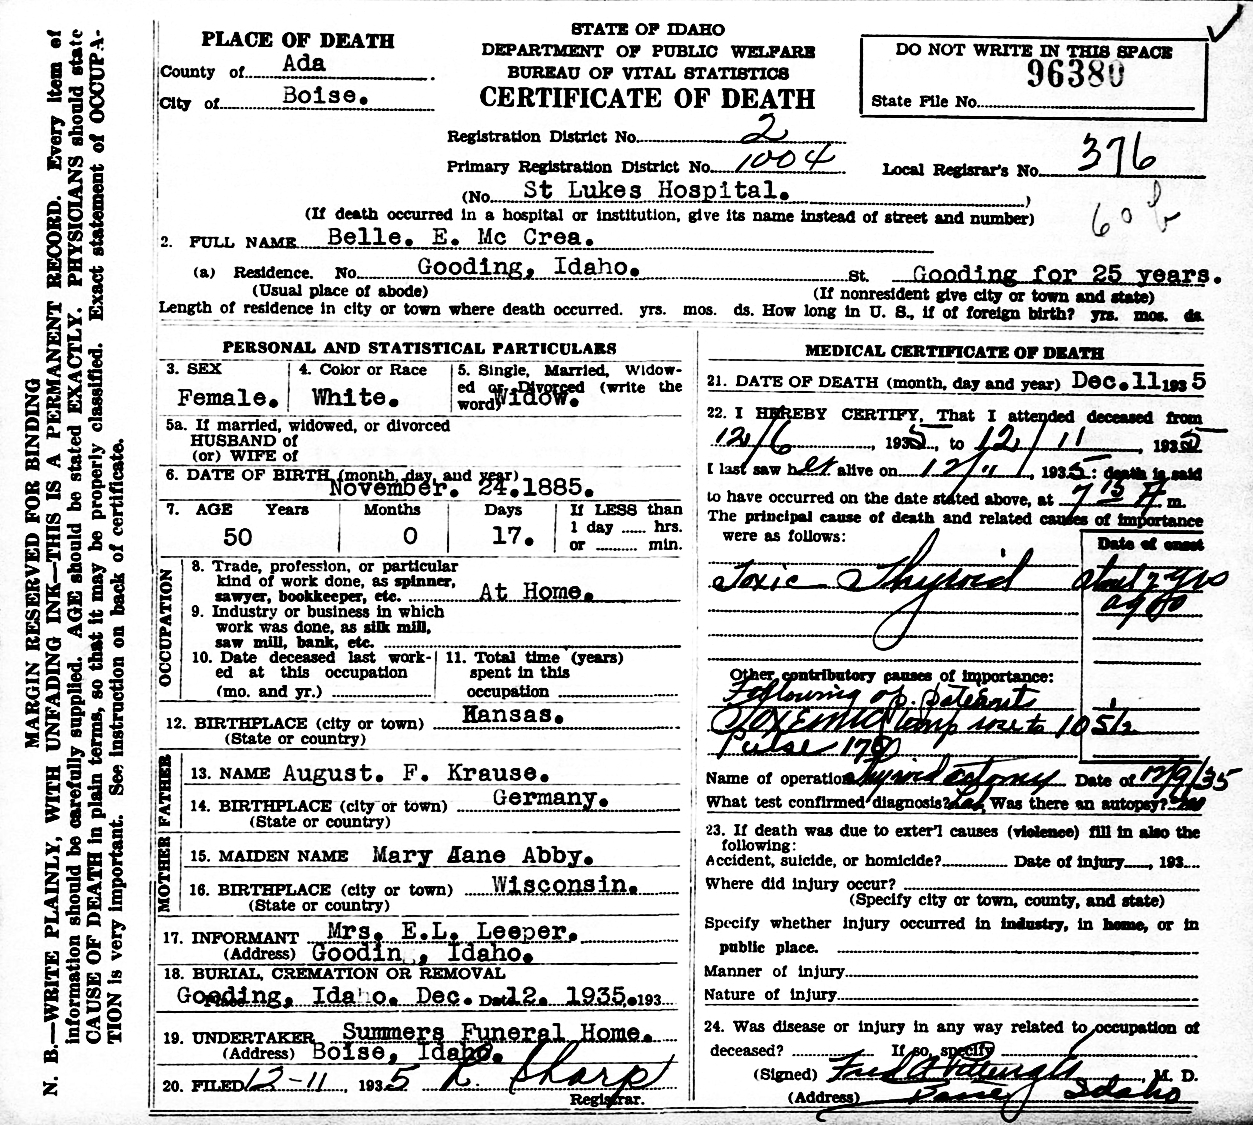 MARGIN RESERVED FOR BINDING
N. B.—WRITE PLAINLY, WITH UNFADING INK—THIS IS A PERMANENT RECORD. Every item of
information should be carefully supplied. AGE should be stated EXACTLY. PHYSICIANS should state
CAUSE OF DEATH in plain terms, so that it may be properly classified. Exact statement of OCCUPA-
TION is very important. See instruction on back of certificate.
PLACE OF DEATH
County of Ada
City of Boise.
STATE OF IDAHO
DEPARTMENT OF PUBLIC WELFARE
BUREAU OF VITAL STATISTICS
CERTIFICATE OF DEATH
DO NOT WRITE IN THIS SPACE
96380
State File No.
Registration District No. 2
Primary Registration District No. 1004
Local Registrar's No. 376
(No. St Lukes Hospital. )
(If death occurred in a hospital or institution, give its name instead of street and number)
60 b
2. FULL NAME Belle. E. Mc Crea.
(a) Residence. No. Gooding, Idaho. St. Gooding for 25 years.
(Usual place of abode) (If nonresident give city or town and state)
Length of residence in city or town where death occurred. yrs. mos. ds. How long in U. S., if of foreign birth? yrs. mos. ds.
PERSONAL AND STATISTICAL PARTICULARS
3. SEX
Female.
4. Color or Race
White.
5. Single, Married, Widow-
ed or Divorced (write the
word) Widow.
5a. If married, widowed, or divorced
HUSBAND of
(or) WIFE of
6. DATE OF BIRTH (month, day, and year)
November. 24.1885.
7. AGE Years Months Days If LESS than
1 day ...... hrs.
50 0 17. or ...... min.
OCCUPATION
8. Trade, profession, or particular
kind of work done, as spinner,
sawyer, bookkeeper, etc. At Home.
9. Industry or business in which
work was done, as silk mill,
saw mill, bank, etc.
10. Date deceased last work-
ed at this occupation
(mo. and yr.)
11. Total time (years)
spent in this
occupation
12. BIRTHPLACE (city or town) Kansas.
(State or country)
FATHER
13. NAME August. F. Krause.
14. BIRTHPLACE (city or town) Germany.
(State or country)
MOTHER
15. MAIDEN NAME Mary Jane Abby.
16. BIRTHPLACE (city or town) Wisconsin.
(State or country)
17. INFORMANT Mrs. E.L. Leeper.
(Address) Goodin , Idaho.
18. BURIAL, CREMATION OR REMOVAL
Place Gooding, Idaho. Dec. Date 12. 1935. 193
19. UNDERTAKER Summers Funeral Home.
(Address) Boise, Idaho.
20. FILED 12-11, 1935 L. Sharp
Registrar.
MEDICAL CERTIFICATE OF DEATH
21. DATE OF DEATH (month, day and year) Dec. 11 1935
22. I HEREBY CERTIFY, That I attended deceased from
12/6, 1935, to 12/11, 1935
I last saw her alive on 12/11, 1935; death is said
to have occurred on the date stated above, at 7 15 A m.
The principal cause of death and related causes of importance
were as follows:
Date of onset
Toxic Thyroid about 2 yrs
ago
Other contributory causes of importance:
Following op. patients
Toxemic temp rose to 105½
Pulse 170
Name of operation Thyroidectomy Date of 12/9/35
What test confirmed diagnosis? Lab, Was there an autopsy? no
23. If death was due to exter'l causes (violence) fill in also the
following:
Accident, suicide, or homicide? Date of injury, 193
Where did injury occur?
(Specify city or town, county, and state)
Specify whether injury occurred in industry, in home, or in
public place.
Manner of injury
Nature of injury
24. Was disease or injury in any way related to occupation of
deceased? If so, specify
(Signed) Fred A Pittenger, M. D.
(Address) Boise, Idaho